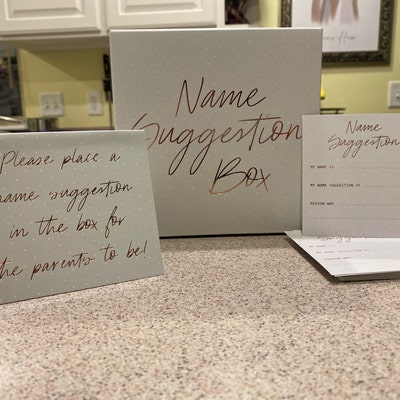 Please place a
name suggestion
in the box for
the parents to be!
Name
Suggestion
Box
Name
Suggestion
MY NAME IS
MY NAME SUGGESTION IS
REASON WHY
Him